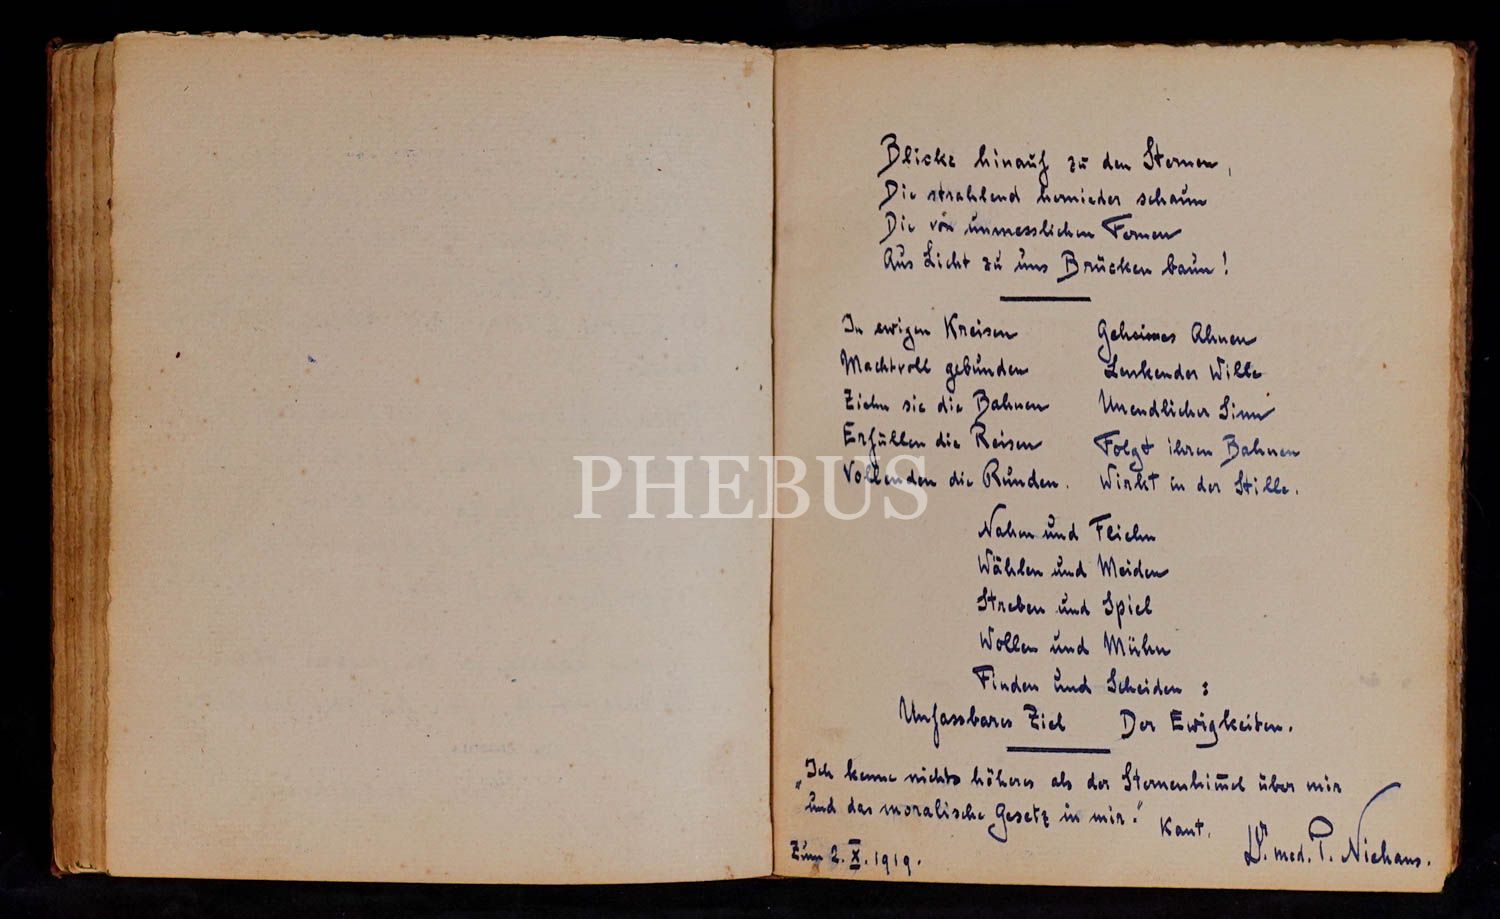 Blicke hinauf zu den Sternen,
Die strahlend hernieder schaun
Die von unmesslichen Fernen
Aus Licht zu uns Brücken baun!
In ewigen Kreisen
Machtvoll gebunden
Ziehn sie die Bahnen
Erfüllen die Reisen
Vollenden die Runden.
Geheimes Ahnen
Lenkender Wille
Unendlicher Sinn
Folgt ihren Bahnen
Wirkt in der Stille.
Nahen und Fliehn
Wählen und Meiden
Streben und Spiel
Wollen und Mühn
Finden und Scheiden :
Unfassbares Ziel Der Ewigkeiten.
„Ich kenne nichts höheres als der Sternenhim̅el über mir
und das moralische Gesetz in mir."
Kant.
Zum 2. X. 1919.
Dr. med. P. Niehans.
PHEBUS